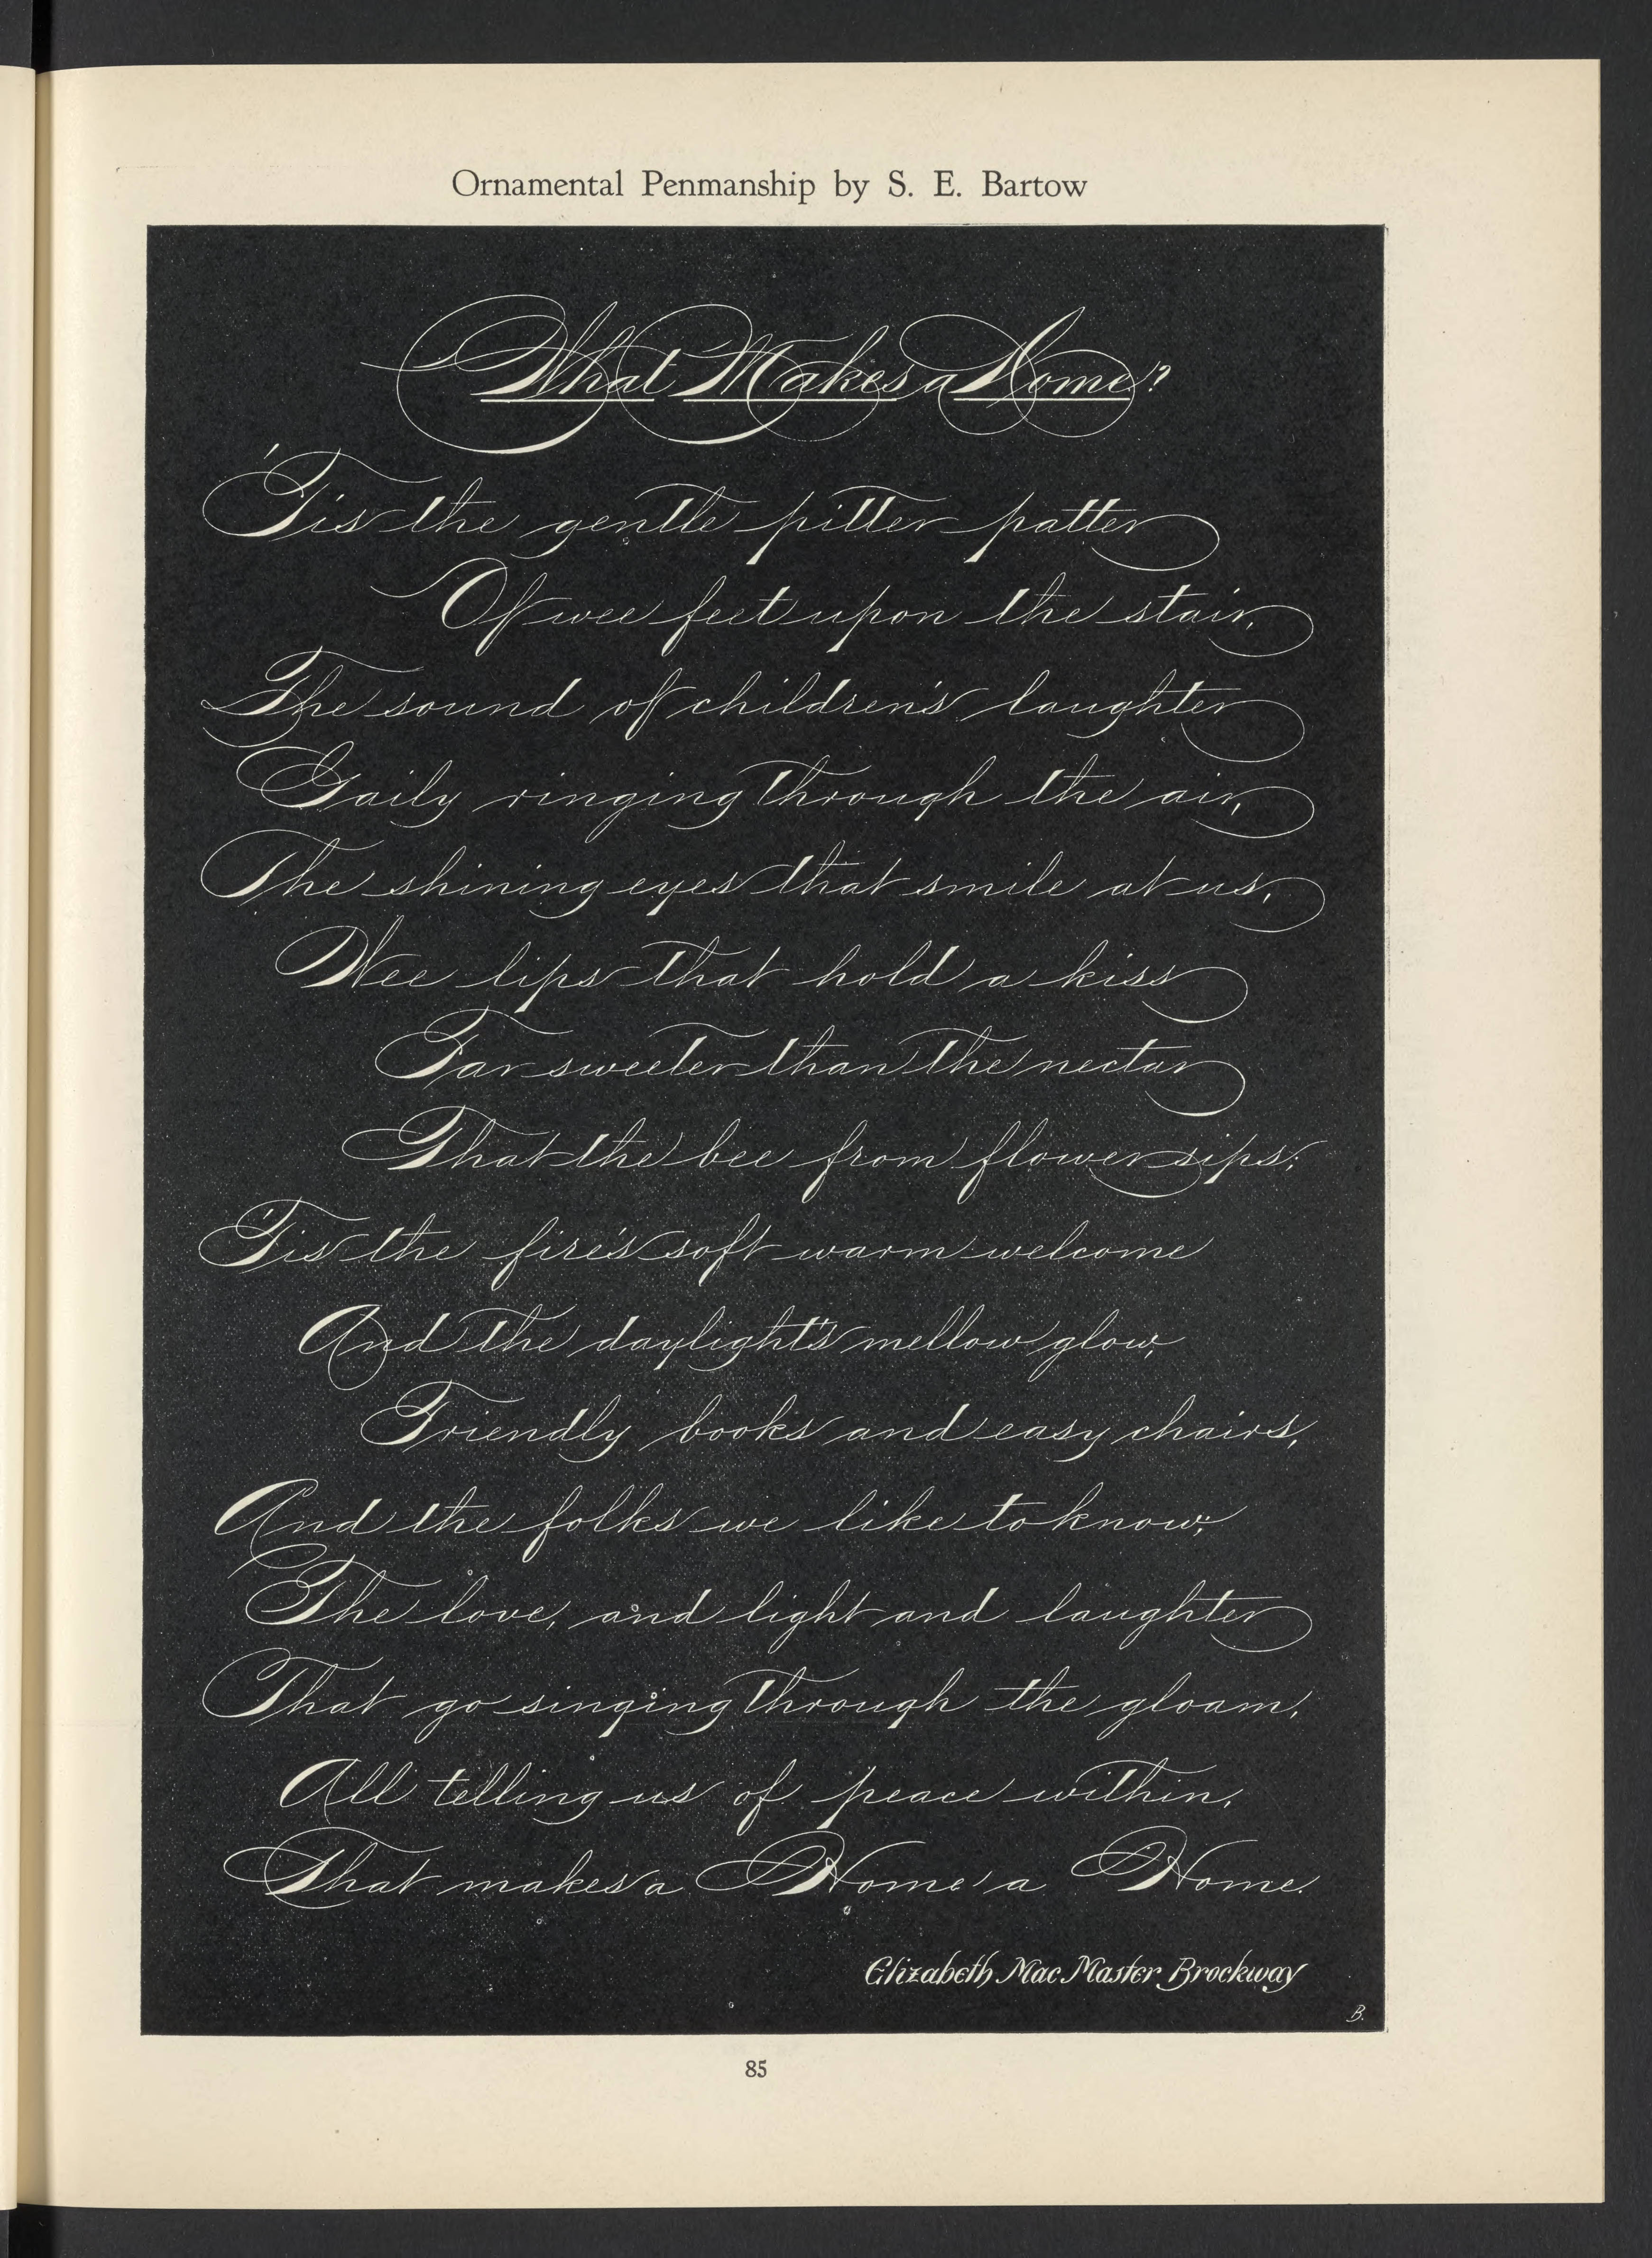 Ornamental Penmanship by S. E. Bartow
What Makes a Home?
'Tis the gentle pitter patter
Of wee feet upon the stair,
The sound of children's laughter
Gaily ringing through the air,
The shining eyes that smile at us,
Wee lips that hold a kiss
Far sweeter than the nectar
That the bee from flower sips;
'Tis the fire's soft warm welcome
And the daylight's mellow glow,
Friendly books and easy chairs,
And the folks we like to know;
The love, and light and laughter
That go singing through the gloam,
All telling us of peace within,
That makes a Home a Home.
Elizabeth Mac Master Brockway
B.
85